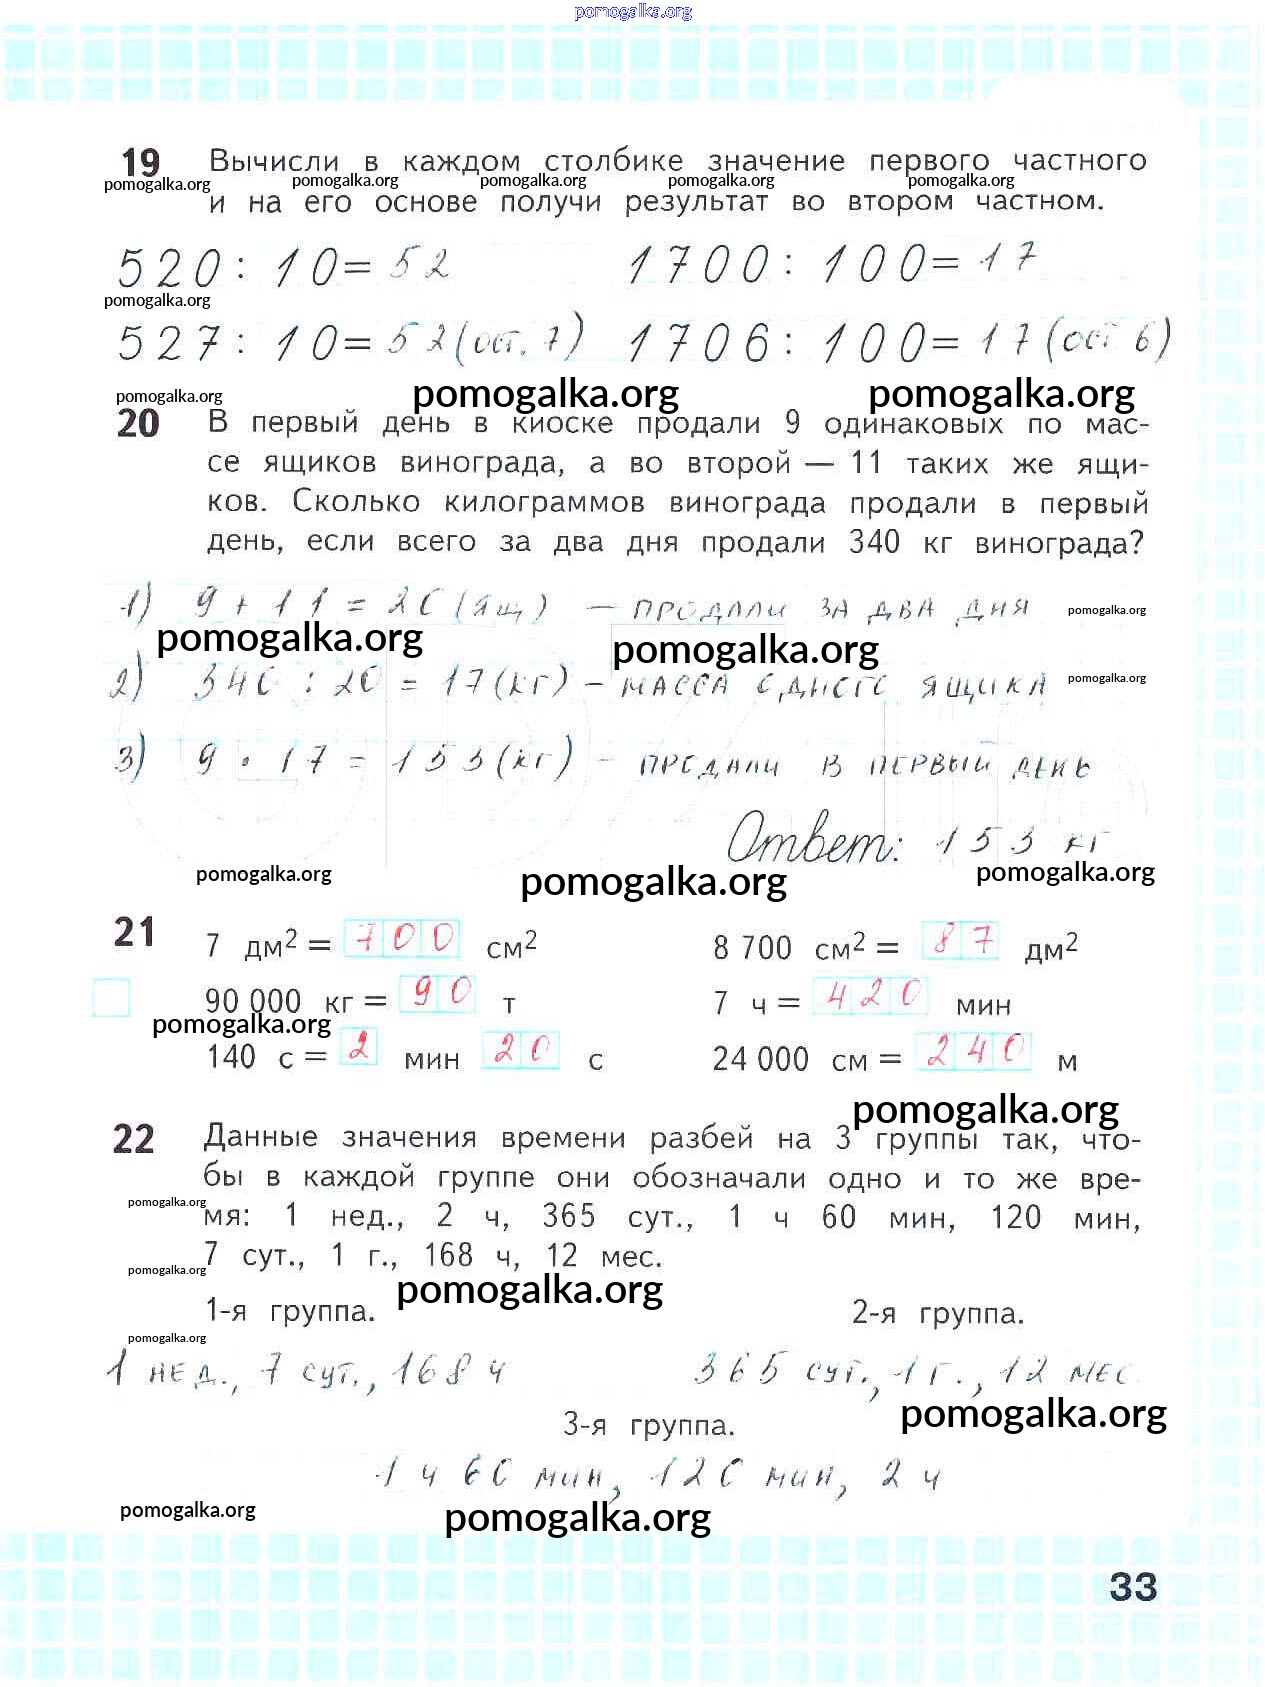 pomogalka.org
19 Вычисли в каждом столбике значение первого частного
pomogalka.org pomogalka.org pomogalka.org pomogalka.org pomogalka.org
и на его основе получи результат во втором частном.
520 : 10 = 52 1700 : 100 = 17
pomogalka.org
527 : 10 = 52 (ост. 7) 1706 : 100 = 17 (ост 6)
pomogalka.org pomogalka.org pomogalka.org
20 В первый день в киоске продали 9 одинаковых по мас-
се ящиков винограда, а во второй — 11 таких же ящи-
ков. Сколько килограммов винограда продали в первый
день, если всего за два дня продали 340 кг винограда?
1) 9 + 11 = 20 (ящ) – продали за два дня pomogalka.org
pomogalka.org pomogalka.org
2) 340 : 20 = 17 (кг) – масса одного ящика pomogalka.org
3) 9 · 17 = 153 (кг) – продали в первый день
Ответ: 153 кг
pomogalka.org pomogalka.org pomogalka.org
21 7 дм² = 700 см² 8 700 см² = 87 дм²
90 000 кг = 90 т 7 ч = 420 мин
pomogalka.org
140 с = 2 мин 20 с 24 000 см = 240 м
pomogalka.org
22 Данные значения времени разбей на 3 группы так, что-
бы в каждой группе они обозначали одно и то же вре-
pomogalka.org
мя: 1 нед., 2 ч, 365 сут., 1 ч 60 мин, 120 мин,
7 сут., 1 г., 168 ч, 12 мес.
pomogalka.org pomogalka.org
1-я группа. 2-я группа.
pomogalka.org
1 нед., 7 сут., 168 ч 365 сут., 1 г., 12 мес
pomogalka.org
3-я группа.
1 ч 60 мин, 120 мин, 2 ч
pomogalka.org pomogalka.org
33